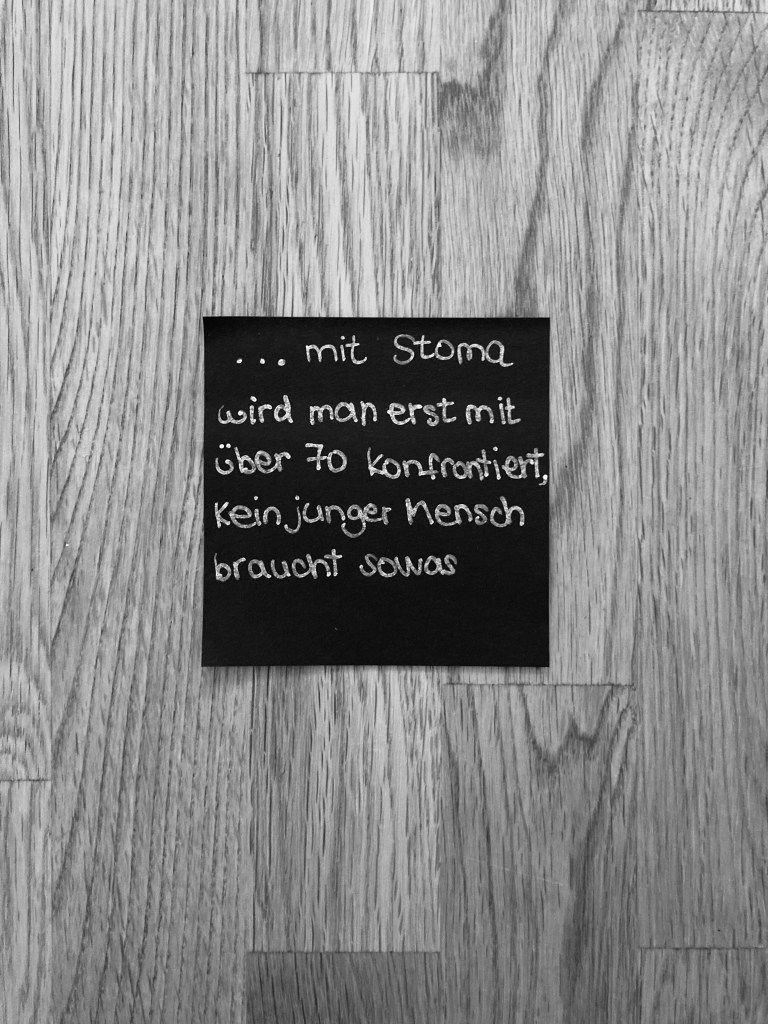 ... mit Stoma
wird man erst mit
über 70 konfrontiert,
kein junger Mensch
braucht sowas